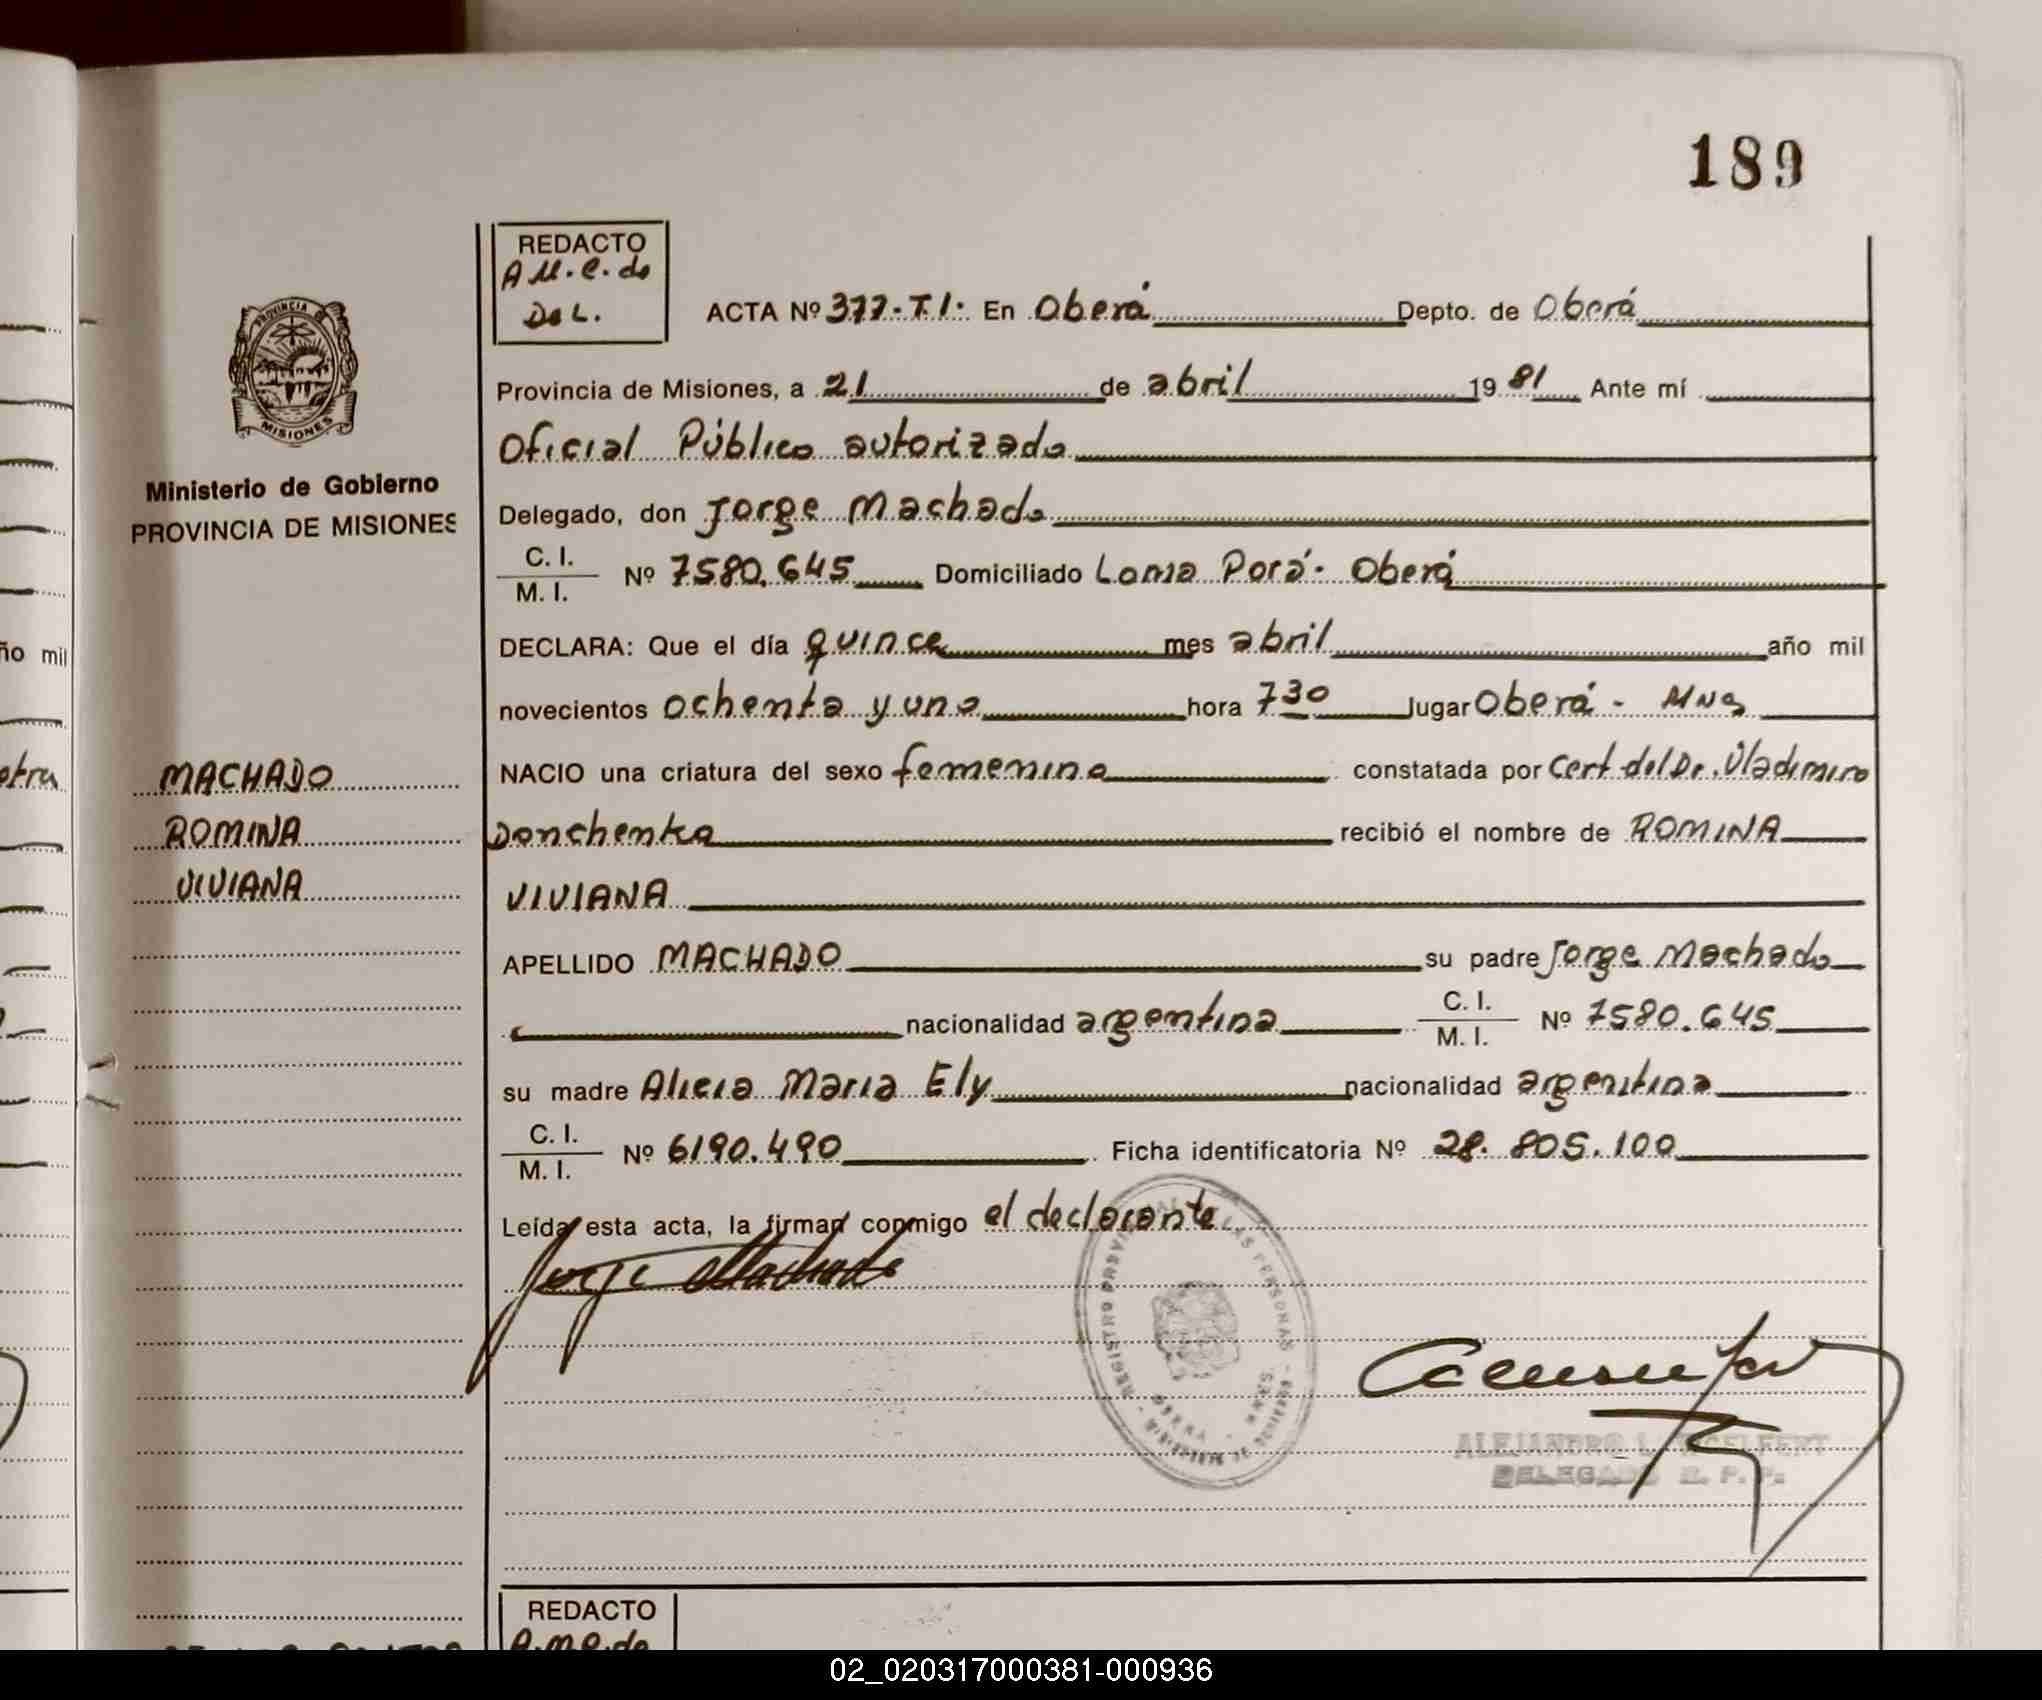 189
REDACTO
A M. C. do
De L.
ACTA Nº 377-T.I. En Oberá Depto. de Oberá
PROVINCIA DE
MISIONES
Ministerio de Gobierno
PROVINCIA DE MISIONES
Provincia de Misiones, a 21 de abril 19 81 Ante mí
Oficial Público autorizado
Delegado, don Jorge Machado
C. I.
M. I. Nº 7580.645 Domiciliado Loma Porá - Oberá
DECLARA: Que el día quince mes abril año mil
novecientos ochenta y uno hora 7 30 lugar Oberá - Mns
NACIO una criatura del sexo femenino constatada por Cert. del Dr. Vladimiro
Donchenka recibió el nombre de ROMINA
VIVIANA
MACHADO
ROMINA
VIVIANA
APELLIDO MACHADO su padre Jorge Machado
nacionalidad argentina C. I.
M. I. Nº 7580.645
su madre Alicia Maria Ely nacionalidad argentina
C. I.
M. I. Nº 6190.490 Ficha identificatoria Nº 28.805.100
Leída esta acta, la firman conmigo el declarante
Jorge Machado
REGISTRO PROVINCIAL DE LAS PERSONAS
ALEJANDRO
DELEGADO R. P. P.
REDACTO
A. M. C. do
ño mil
02_020317000381-000936